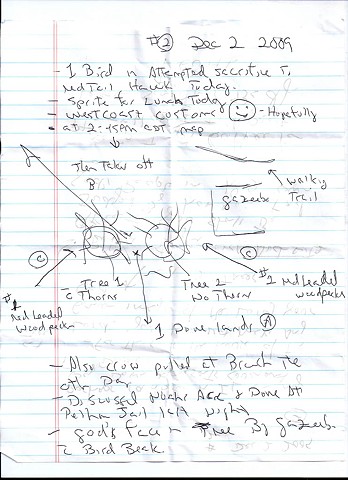 #2 Dec 2 2009
- 1 Bird in Attempted sacrifice to
Red Tail Hawk Today.
- Sprite for Lunch Today
- West coast customs - Hopefully
• at 2:15pm CDT map
then Takes off
B
walking
Trail
gazeebo
C
C
Tree 1
c Thorns
Tree 2
No Thorns
#1
Red headed
woodpecker
#2 Red headed
woodpecker
1 Dove lands A
- Also crow pulled at Branch the
oth Day
- Discussed Noahs Ark & Dove At
Jail last night
- god's Face in Tree By gazeebo
c Bird Beak